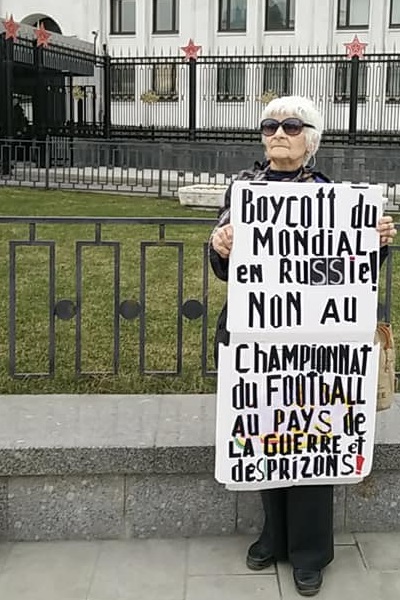 BOYCOTT du
MONDIAL
en RUSSIE!
NON AU
CHAMPIONNAT
du FOOTBALL
AU PAYS de
LA GUERRE et
desPRIZONS!